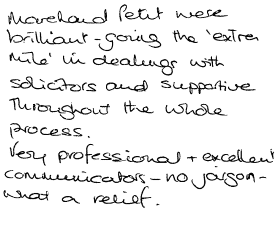 Morehand Petit were
brilliant - going the 'extra
mile' in dealings with
solicitors and supportive
throughout the whole
process.
Very professional + excellent
communicators - no jargon -
what a relief.